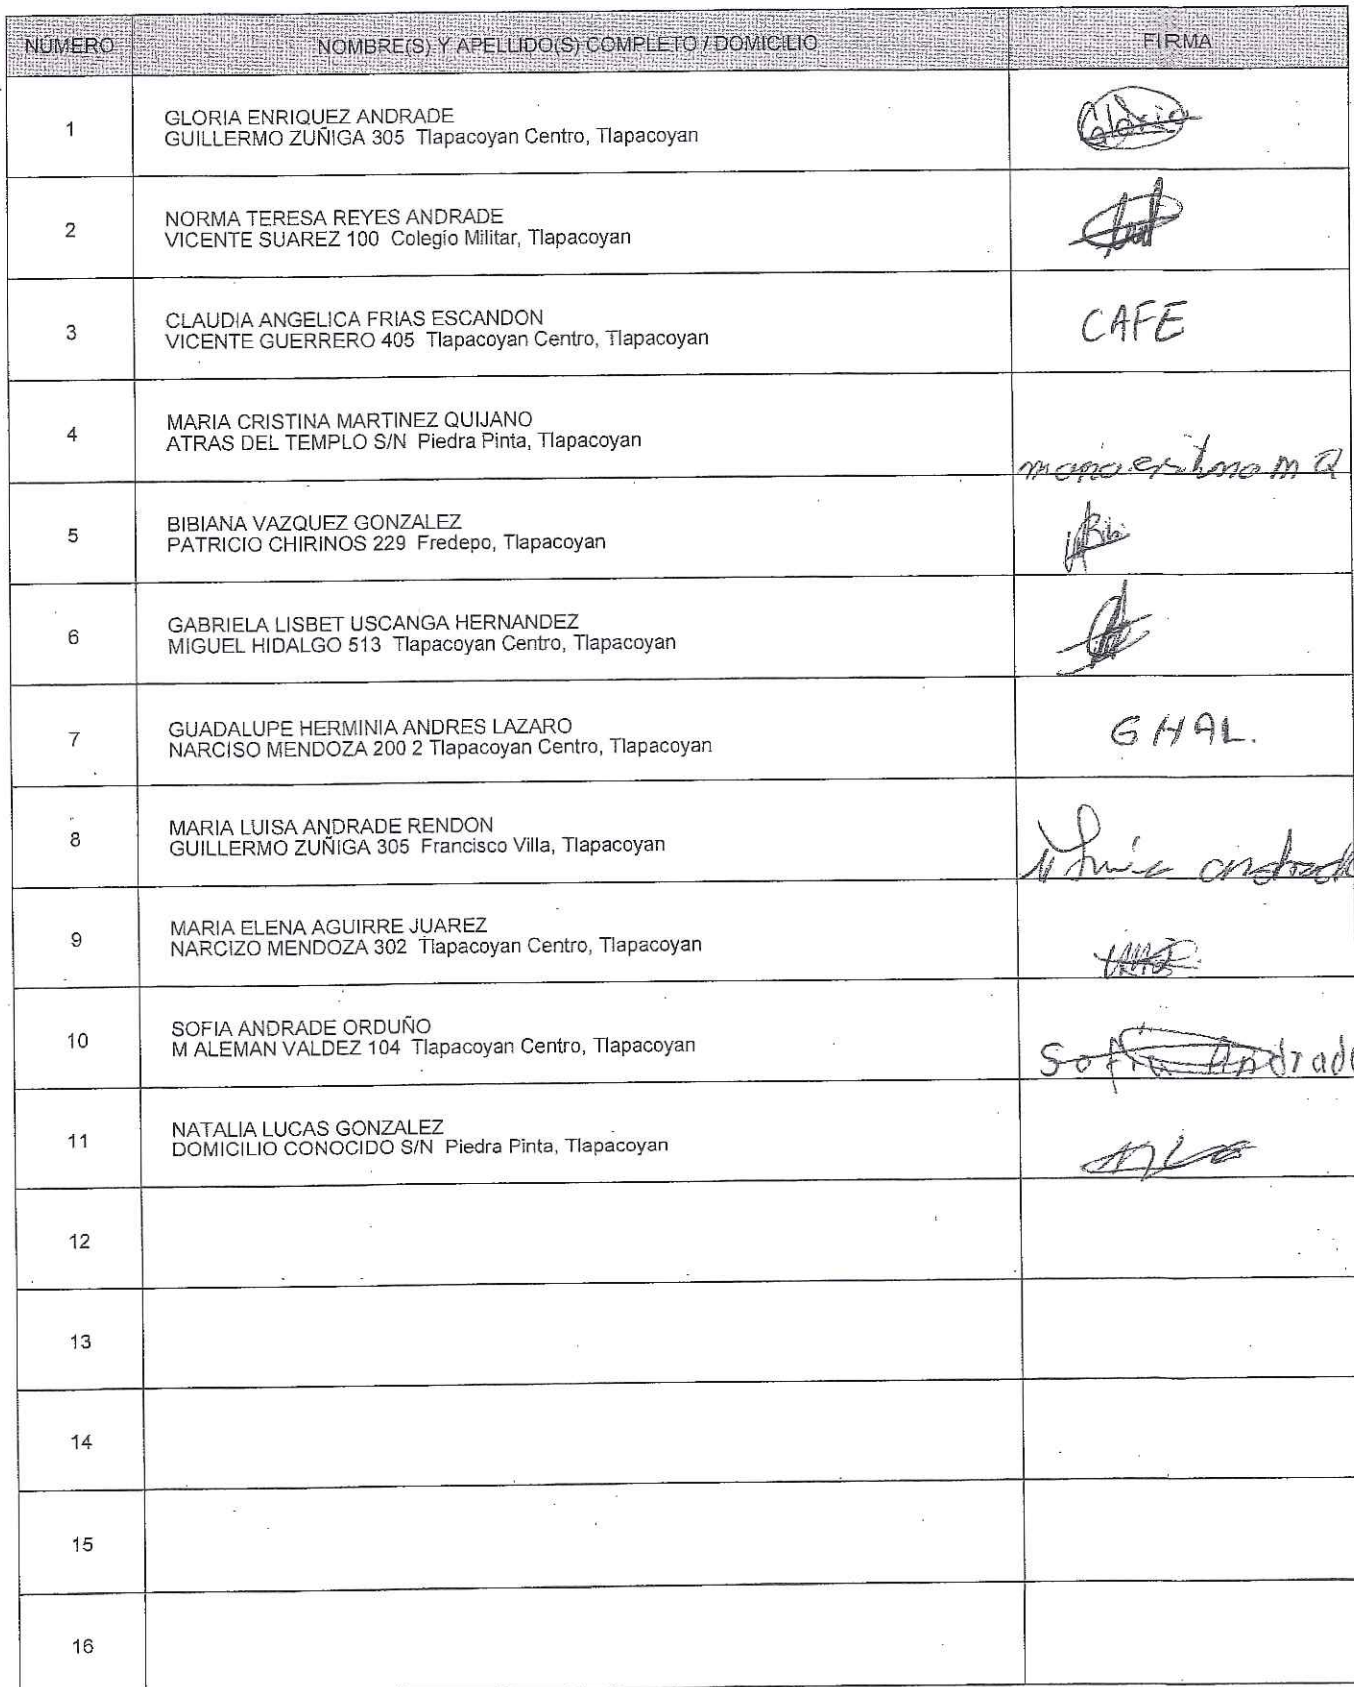 NÚMERO NOMBRE(S) Y APELLIDO(S) COMPLETO / DOMICILIO FIRMA
1 GLORIA ENRIQUEZ ANDRADE
GUILLERMO ZUÑIGA 305 Tlapacoyan Centro, Tlapacoyan
Gloria
2 NORMA TERESA REYES ANDRADE
VICENTE SUAREZ 100 Colegio Militar, Tlapacoyan
3 CLAUDIA ANGELICA FRIAS ESCANDON
VICENTE GUERRERO 405 Tlapacoyan Centro, Tlapacoyan
CAFE
4 MARIA CRISTINA MARTINEZ QUIJANO
ATRAS DEL TEMPLO S/N Piedra Pinta, Tlapacoyan
m Q
5 BIBIANA VAZQUEZ GONZALEZ
PATRICIO CHIRINOS 229 Fredepo, Tlapacoyan
6 GABRIELA LISBET USCANGA HERNANDEZ
MIGUEL HIDALGO 513 Tlapacoyan Centro, Tlapacoyan
7 GUADALUPE HERMINIA ANDRES LAZARO
NARCISO MENDOZA 200 2 Tlapacoyan Centro, Tlapacoyan
GHAL.
8 MARIA LUISA ANDRADE RENDON
GUILLERMO ZUÑIGA 305 Francisco Villa, Tlapacoyan
9 MARIA ELENA AGUIRRE JUAREZ
NARCIZO MENDOZA 302 Tlapacoyan Centro, Tlapacoyan
10 SOFIA ANDRADE ORDUÑO
M ALEMAN VALDEZ 104 Tlapacoyan Centro, Tlapacoyan
Sofia Andrade
11 NATALIA LUCAS GONZALEZ
DOMICILIO CONOCIDO S/N Piedra Pinta, Tlapacoyan
12
13
14
15
16